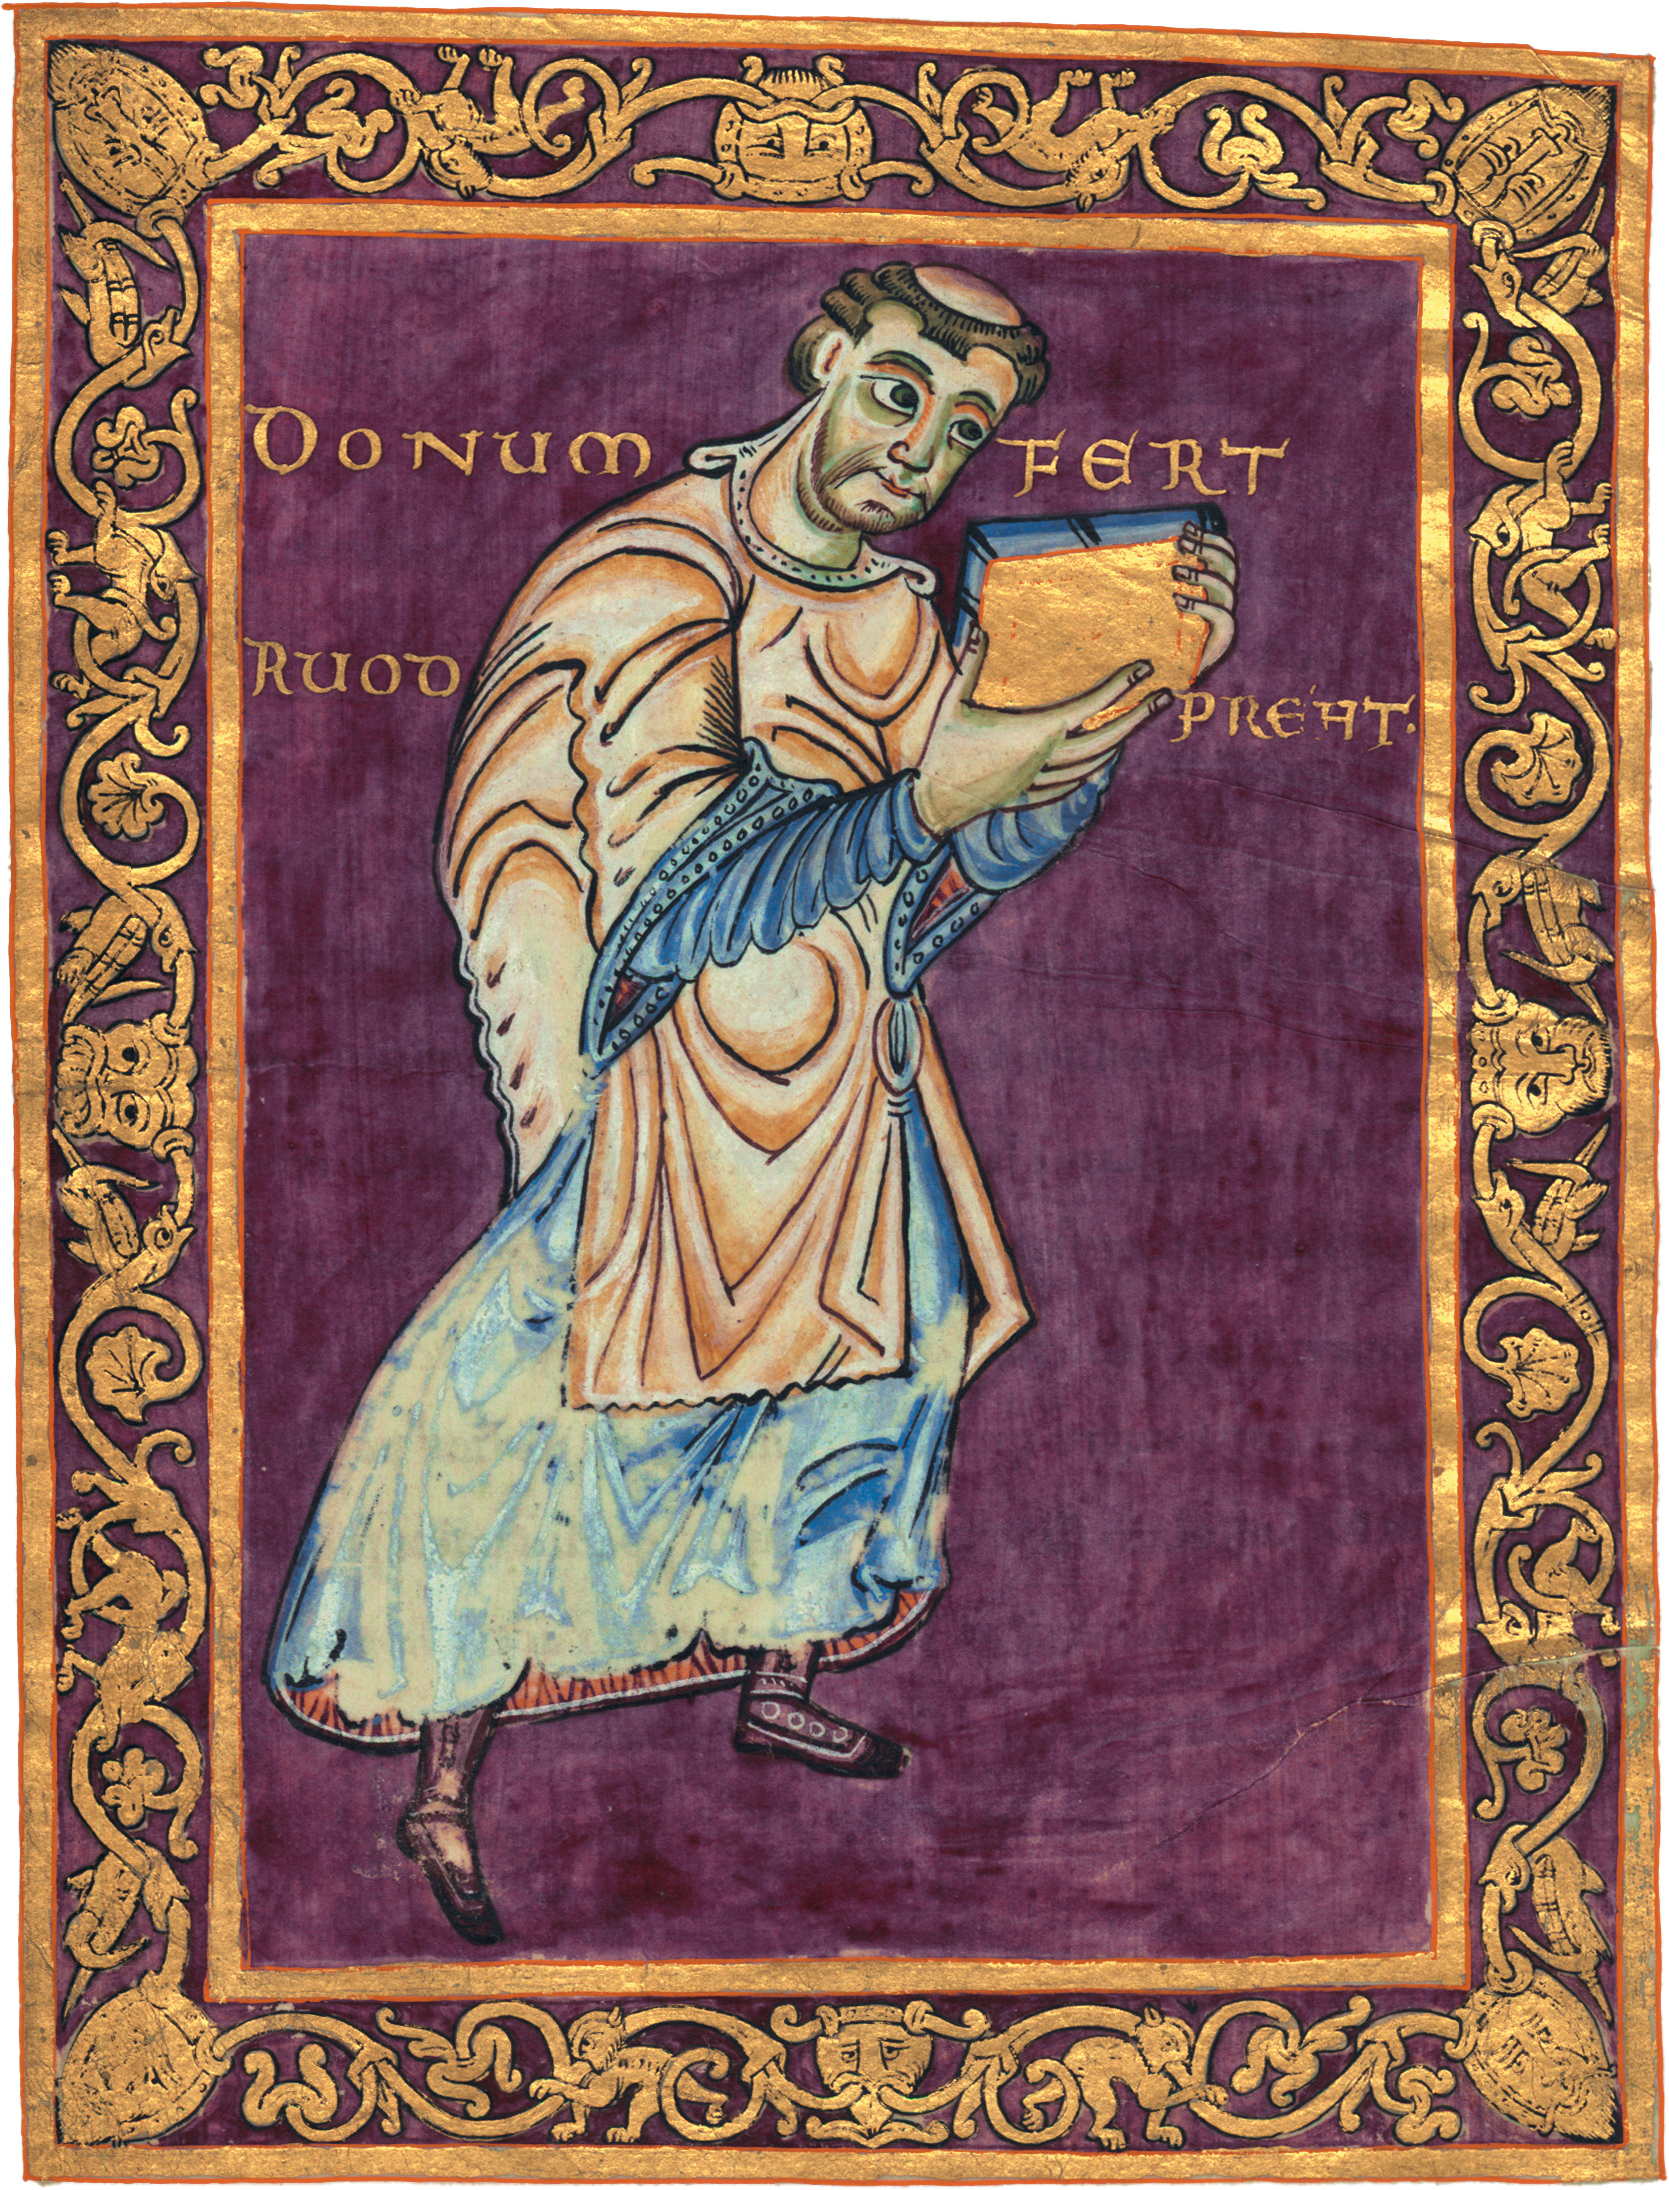 DONUM FERT
RUOD PREHT.